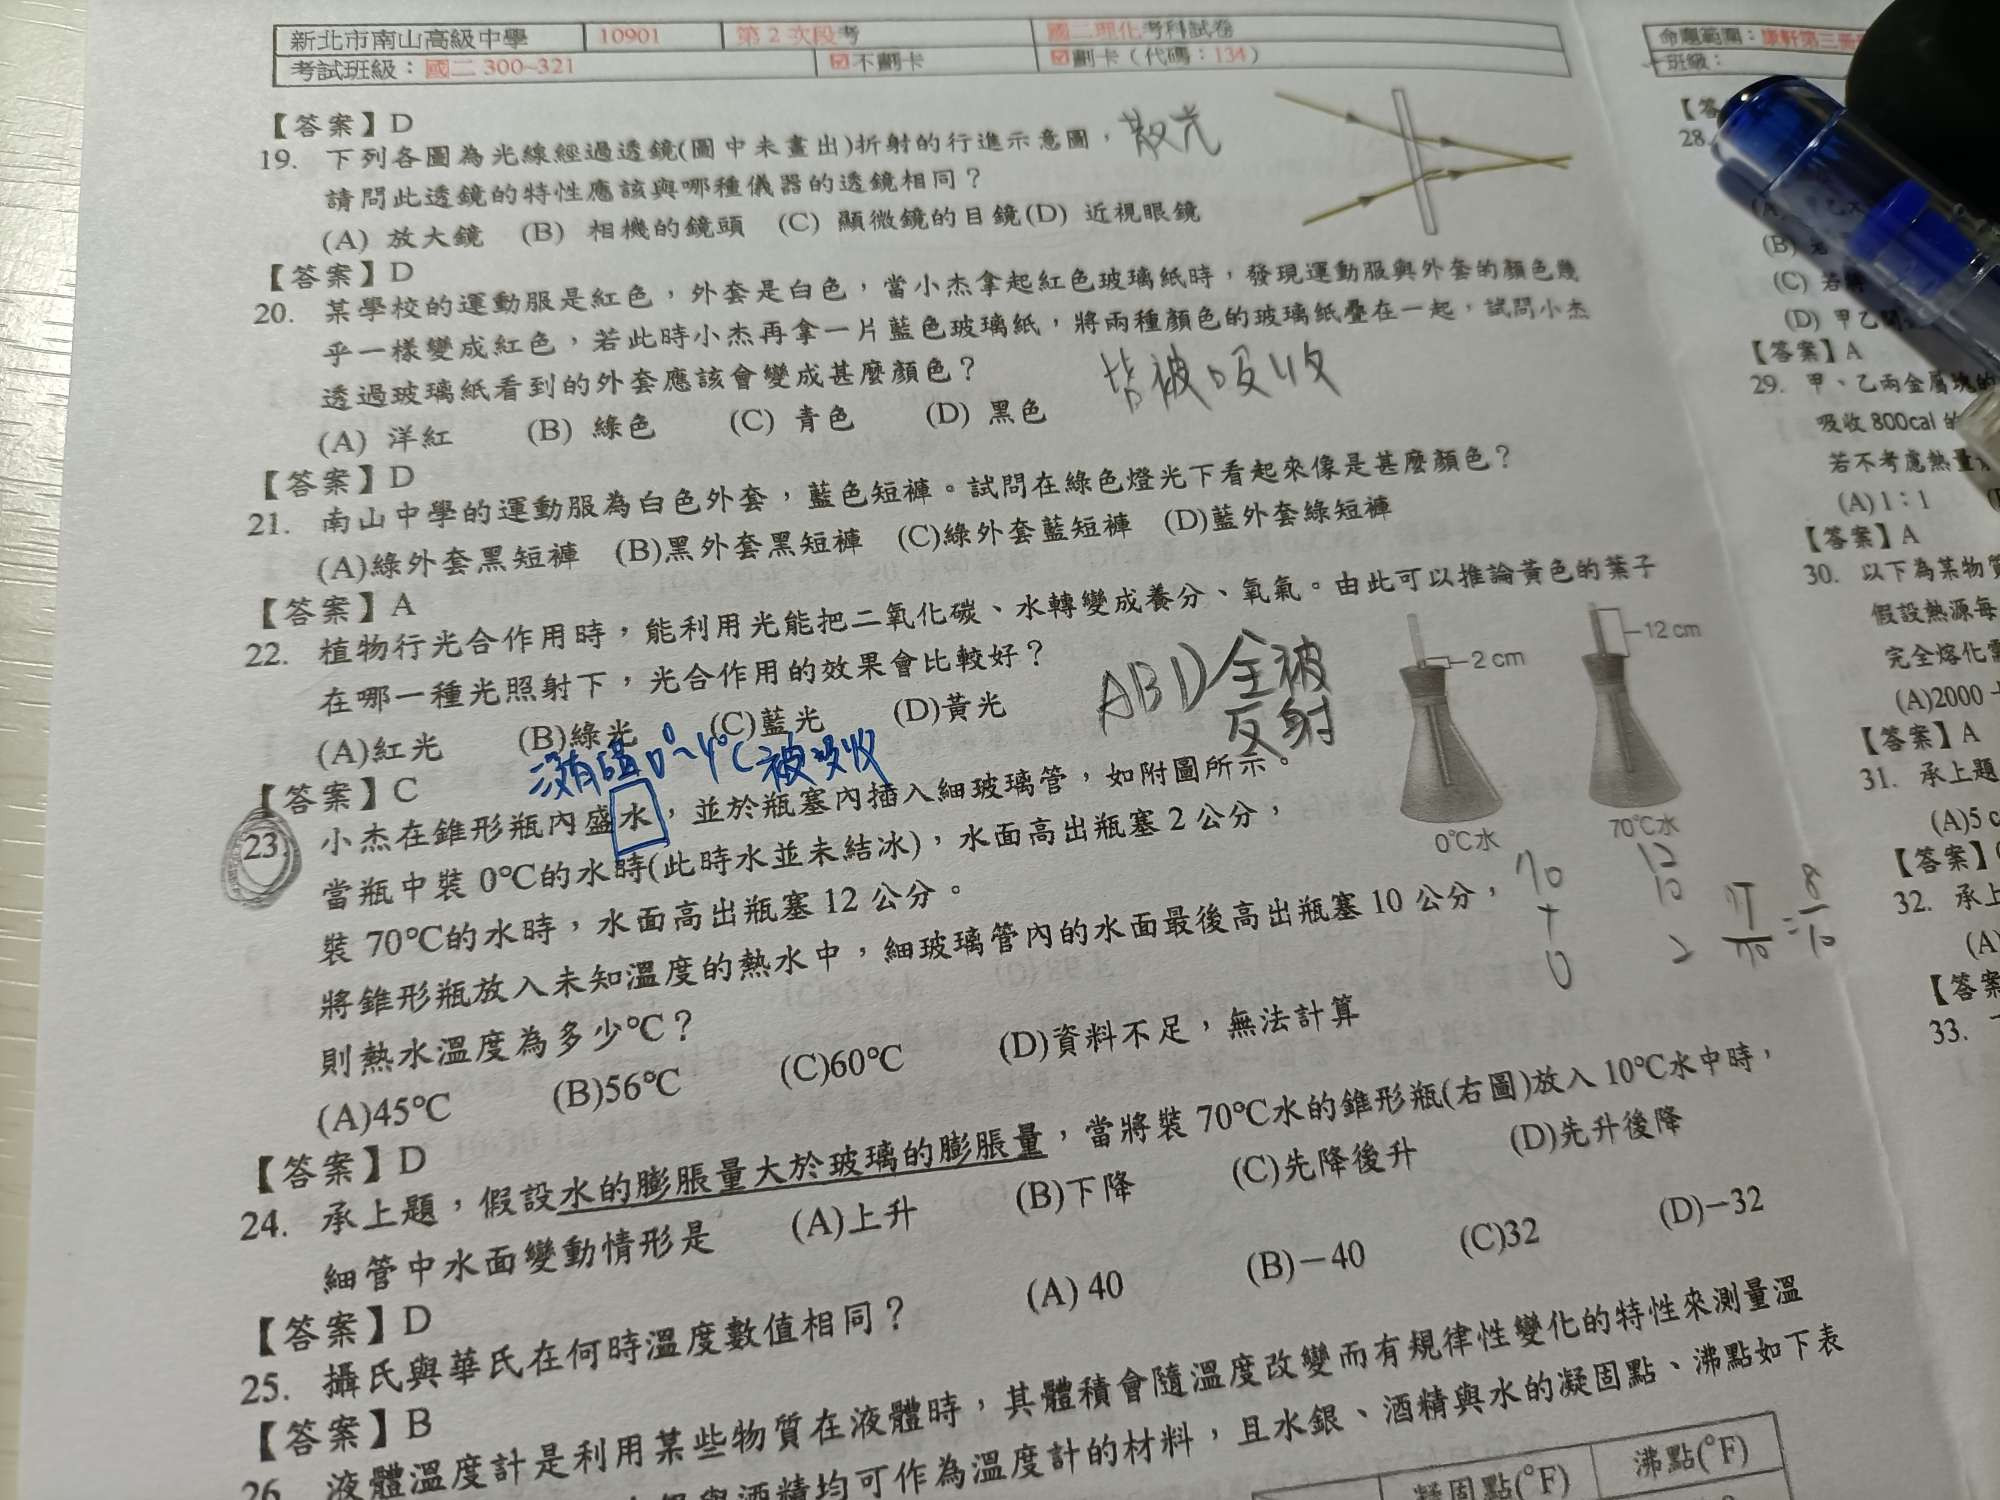 新北市南山高級中學 10901 第2次段考 國二理化考科試卷
考試班級：國二300~321 ☑不翻卡 ☑劃卡（代碼：134）
【答案】D
19. 下列各圖為光線經過透鏡(圖中未畫出)折射的行進示意圖， 散光
請問此透鏡的特性應該與哪種儀器的透鏡相同？
(A) 放大鏡 (B) 相機的鏡頭 (C) 顯微鏡的目鏡(D) 近視眼鏡
【答案】D
20. 某學校的運動服是紅色，外套是白色，當小杰拿起紅色玻璃紙時，發現運動服與外套的顏色幾
乎一樣變成紅色，若此時小杰再拿一片藍色玻璃紙，將兩種顏色的玻璃紙疊在一起，試問小杰
透過玻璃紙看到的外套應該會變成甚麼顏色？ 皆被吸收
(A) 洋紅 (B) 綠色 (C) 青色 (D) 黑色
【答案】D
21. 南山中學的運動服為白色外套，藍色短褲。試問在綠色燈光下看起來像是甚麼顏色？
(A)綠外套黑短褲 (B)黑外套黑短褲 (C)綠外套藍短褲 (D)藍外套綠短褲
【答案】A
22. 植物行光合作用時，能利用光能把二氧化碳、水轉變成養分、氧氣。由此可以推論黃色的葉子
在哪一種光照射下，光合作用的效果會比較好？ ABD全被
反射
(A)紅光 (B)綠光 (C)藍光 (D)黃光
【答案】C
0°~4°C被吸收
23. 小杰在錐形瓶內盛水，並於瓶塞內插入細玻璃管，如附圖所示。
當瓶中裝 0℃的水時(此時水並未結冰)，水面高出瓶塞 2 公分，
裝 70℃的水時，水面高出瓶塞 12 公分。
將錐形瓶放入未知溫度的熱水中，細玻璃管內的水面最後高出瓶塞 10 公分，
則熱水溫度為多少℃？
(A)45℃ (B)56℃ (C)60℃ (D)資料不足，無法計算
2 cm
12 cm
0℃水
70℃水
70 12
T 10
0 2
T/70 = 8/10
【答案】D
24. 承上題，假設水的膨脹量大於玻璃的膨脹量，當將裝 70℃水的錐形瓶(右圖)放入 10℃水中時，
細管中水面變動情形是 (A)上升 (B)下降 (C)先降後升 (D)先升後降
【答案】D
25. 攝氏與華氏在何時溫度數值相同？ (A) 40 (B)－40 (C)32 (D)－32
【答案】B
26 液體溫度計是利用某些物質在液體時，其體積會隨溫度改變而有規律性變化的特性來測量溫
與酒精均可作為溫度計的材料，且水銀、酒精與水的凝固點、沸點如下表
凝固點(°F) 沸點(°F)
命題範圍：康軒第三冊
班級：
28.
(B)
(C) 若
(D) 甲乙
【答案】A
29. 甲、乙兩金屬塊的
吸收 800cal 的
若不考慮熱量
(A) 1：1
【答案】A
30. 以下為某物質
假設熱源每
完全熔化需
(A)2000
【答案】A
31. 承上題
(A)5 c
【答案】
32. 承上
(A)
【答案
33.